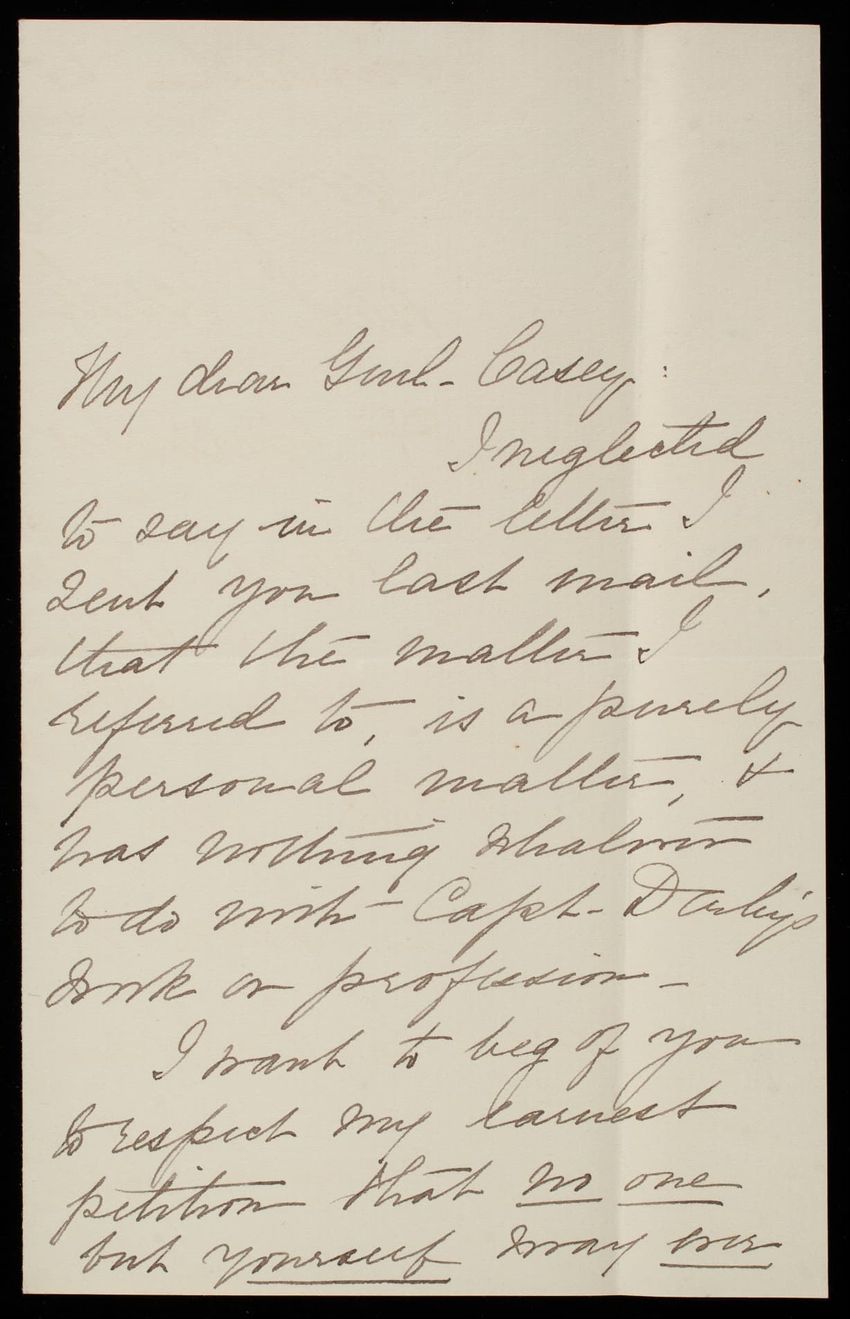 My dear Genl- Casey:
I neglected
to say in the letter I
sent you last mail,
that the matter I
referred to, is a purely
personal matter, &
has nothing whatever
to do with Capt- Derby's
work or profession-
I want to beg of you
to respect my earnest
petition that no one
but yourself may ever